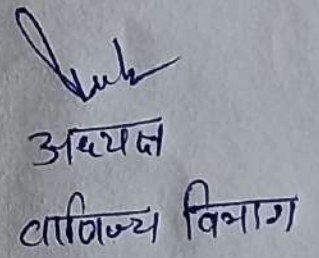 अध्यक्ष
वाणिज्य विभाग